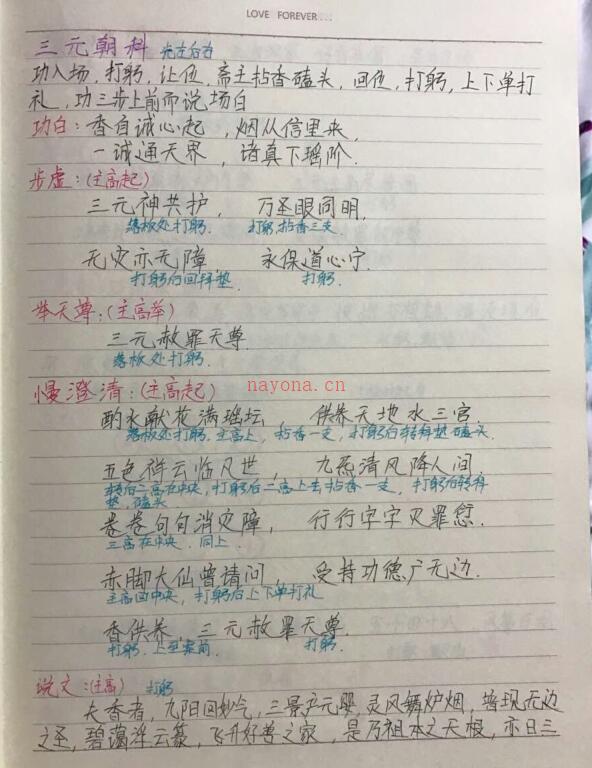 LOVE FOREVER....
三元朝科 先左后右
功入场,打躬,让位,斋主拈香磕头,回位,打躬,上下单打
礼,功三步上前而说场白
功白:香自诚心起,烟从信里来,
一诚通天界,诸真下瑶阶.
步虚:(主高起)
三元神共护, 万圣眼同明.
落板处打躬. 打躬,拈香三支.
无灾亦无障 永保道心宁.
打躬后回拜垫. 打躬.
举天尊:(主高举)
三元赦罪天尊.
落板处打躬.
慢澄清:(主高起)
nayona.cn
酌水献花满瑶坛 供养天地水三官.
落板处打躬.主高上,拈香一支,打躬后转拜垫磕头.
五色祥云临凡世, 九炁清风降人间.
转后二高在中央,打躬后二高上去拈香一支,打躬后转拜
垫.磕头
卷卷句句消灾障, 行行字字灭罪愆.
三高在中央.同上.
赤脚大仙曾请问, 受持功德广无边.
主高回中央,打躬后上下单打礼
香供养,三元赦罪天尊.
打躬.上至案前. 打躬.
说文:(主高) 打躬
夫香者,九阳回妙气,三景产元婴,灵风舞炉烟,普现无边
之圣,碧蔼浮云篆,飞升好善之家,是乃祖本之天根,亦曰三